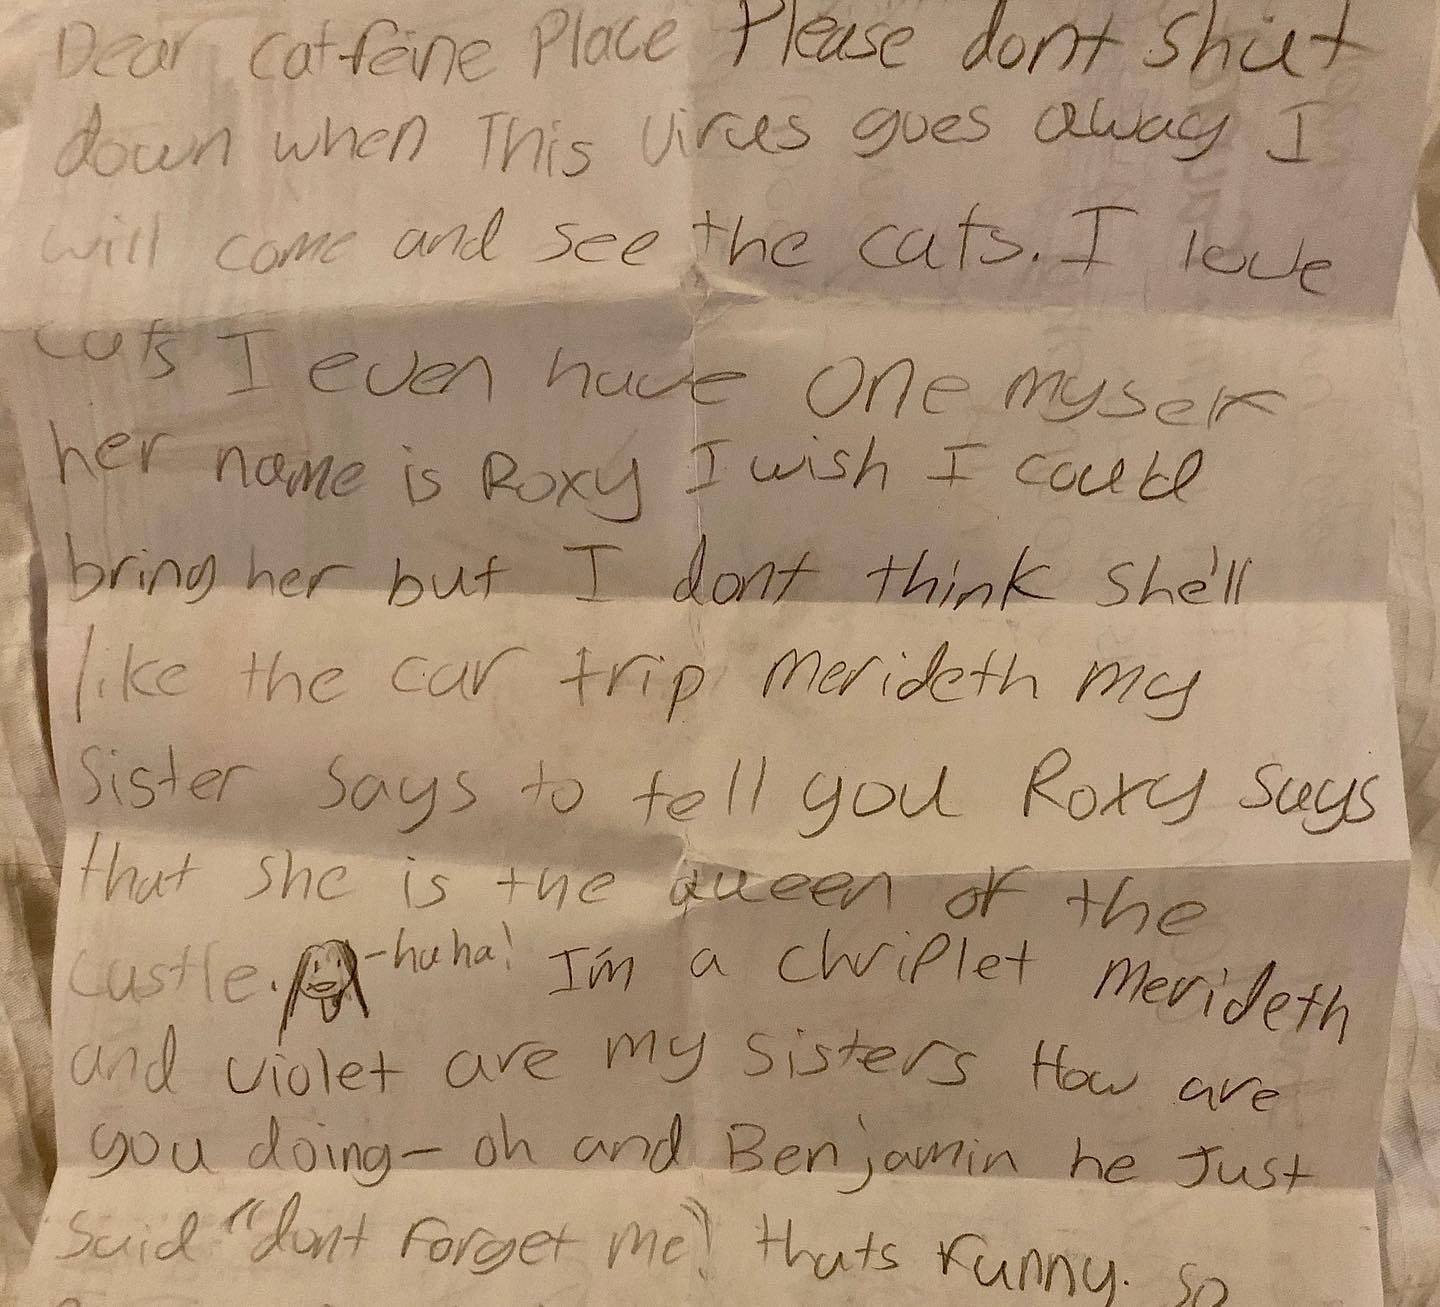 Dear catfeine Place Please dont shut
down when This virus goes away I
will come and see the cats. I love
cats I even have one myself
her name is Roxy I wish I could
bring her but I dont think she'll
like the car trip Merideth my
Sister says to tell you Roxy says
that she is the queen of the
castle. -haha! I'm a chriplet Merideth
and violet are my sisters How are
you doing- oh and Benjamin he Just
said "dont forget me"! thats funny. So